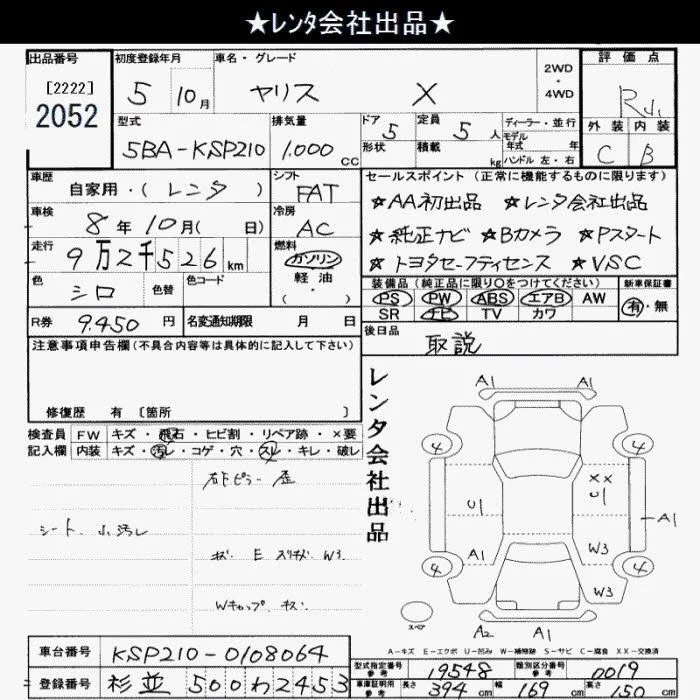 ★レンタ会社出品★
出品番号 初度登録年月 車名・グレード 2WD・4WD 評価点
[2222]
2052
5 10月 ヤリス X R
型式 排気量 ドア 5 定員 5人 ディーラー・並行 外装 内装
5BA-KSP210 1,000cc 形状 積載 kg モデル年式 年 ハンドル 左・右 C B
車歴 自家用・(レンタ) シフト FAT セールスポイント(正常に機能するものに限ります)
☆AA初出品 ☆レンタ会社出品
車検 8年10月(日) 冷房 AC
☆純正ナビ ☆Bカメラ ☆Pスタート
走行 9万2千526km 燃料 ガソリン 軽油・
☆トヨタセーフティセンス ☆VSC
色 シロ 色替 色コード
装備品(純正品に限り○をつけてください) 新車保証書
PS PW ABS エアB AW 有・無
SR ナビ TV カワ
R券 9,450円 名変通知期限 月 日
後日品 取説
注意事項申告欄(不具合内容等は具体的に記入して下さい)
修復歴 有 [箇所 ]
検査員記入欄 FW キズ・飛石・ヒビ割・リペア跡・×要
内装 キズ・汚レ・コゲ・穴・スレ・キレ・破レ
シート 小汚レ
Wキャップ キズ
レンタ会社出品
A1 A1
4 4
XX
U1 U1
A1
A1 W3
4 4
W3
スペア
A2 A1
A-キズ E-エクボ U-凹み W-補修跡 S-サビ C-腐食 XX-交換済
車台番号 KSP210-0108064
登録番号 杉並500わ2453
型式指定番号 参考 19548 類別区分番号 参考 0019
車庫証明用 参考 長さ 394cm 幅 169cm 高さ 150cm